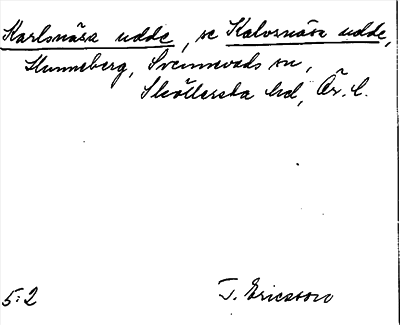 Karlsnäsa udde, se Kalvsnäsa udde,
Hunneberg, Svennevads sn,
Sköllersta hd, Ör. l.
5:2 T. Ericsson